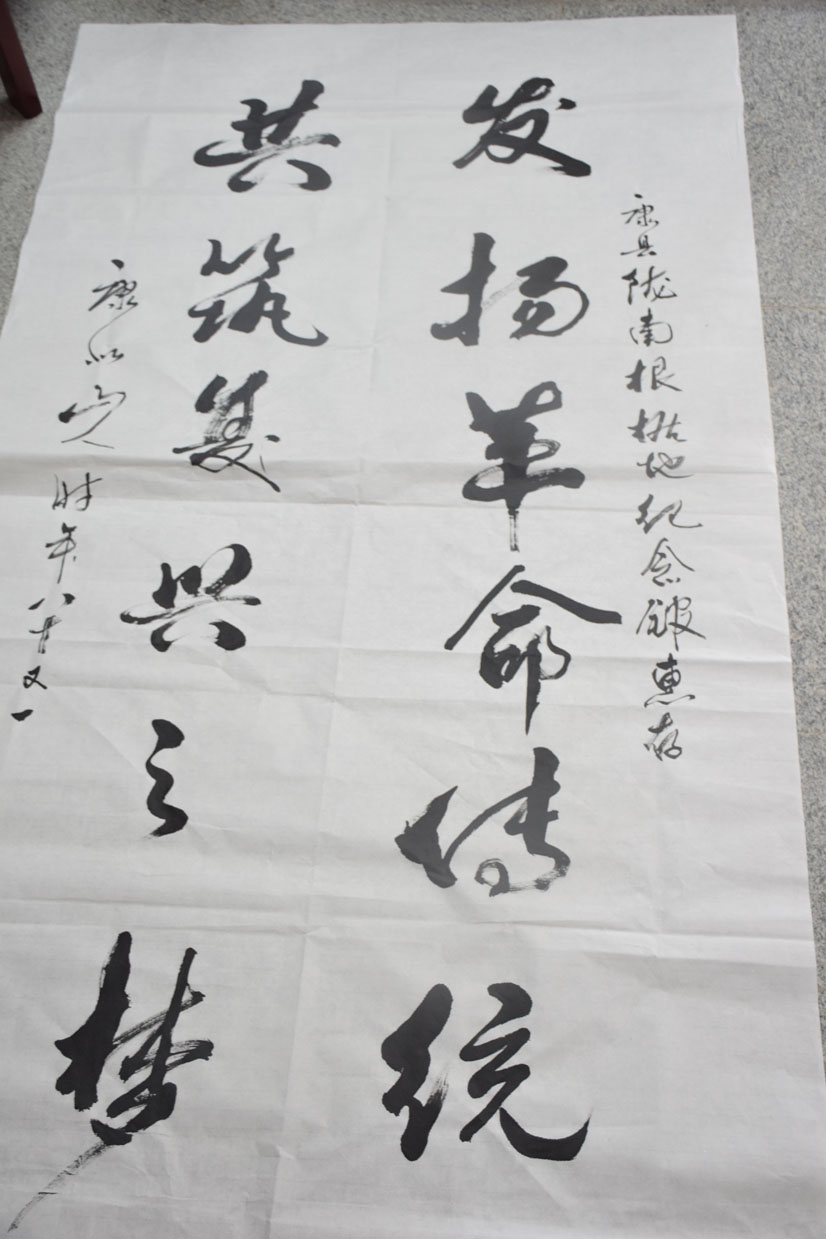 康县陇南根据地纪念馆惠存
发扬革命传统
共筑复兴之梦
康 时年八十又一